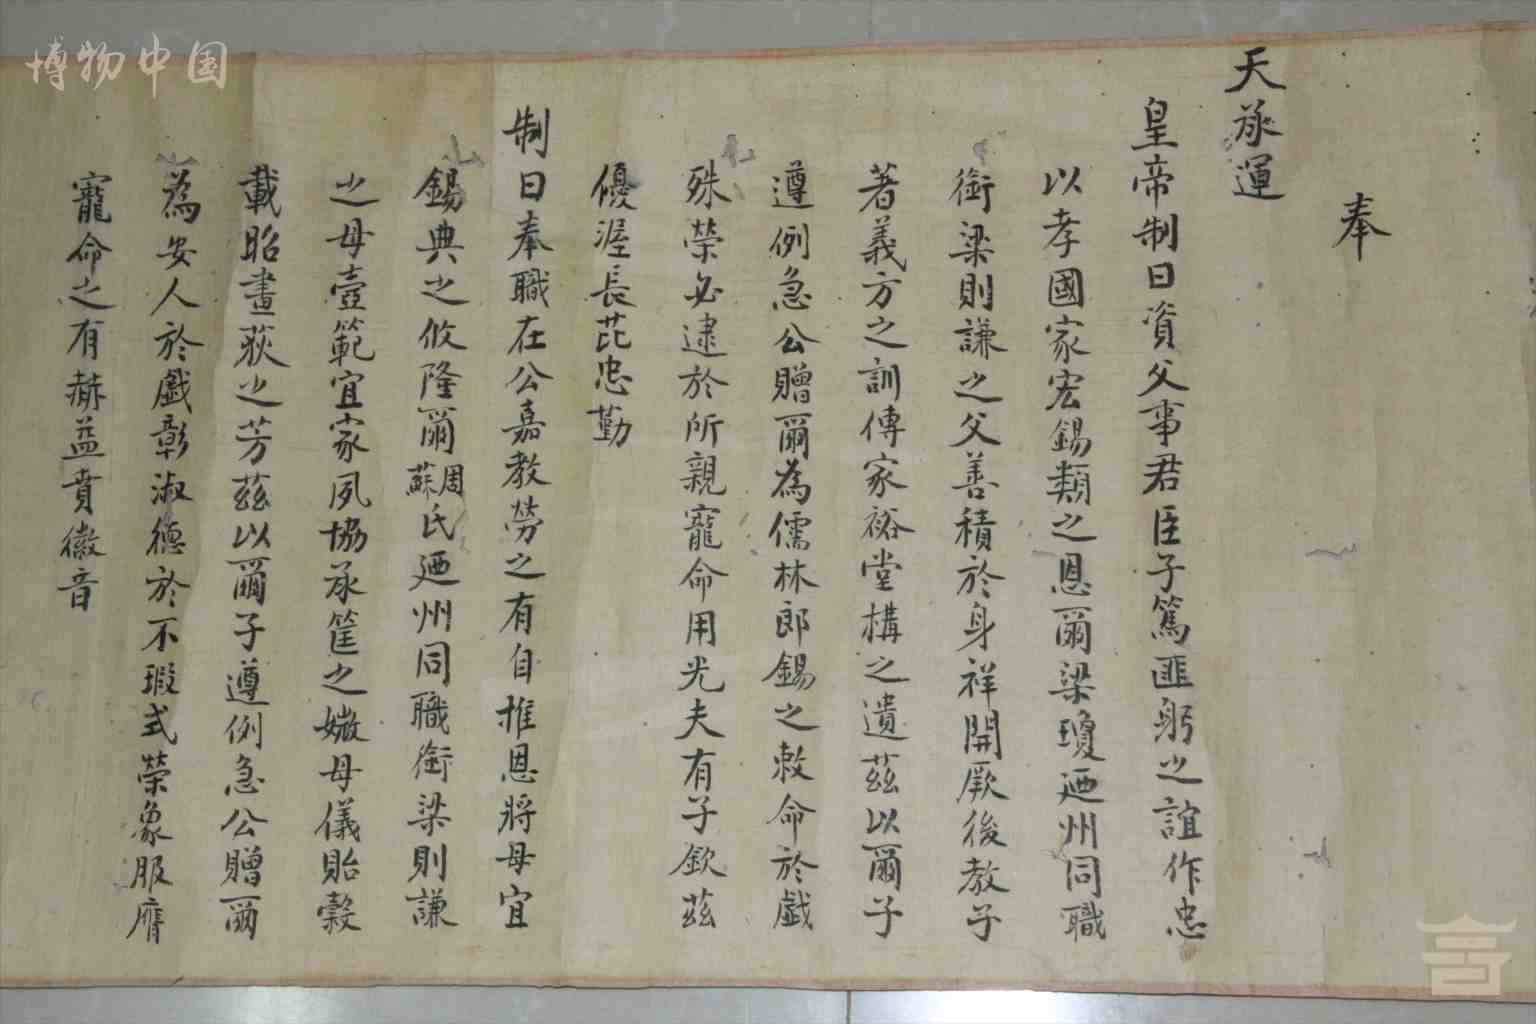 博物中国
奉
天承運
皇帝制曰資父事君臣子篤匪躬之誼作忠
以孝國家宏錫類之恩爾梁瓊廼州同職
銜梁則謙之父善積於身祥開厥後教子
著義方之訓傳家裕堂構之遺茲以爾子
遵例急公贈爾為儒林郎錫之敕命於戲
殊榮必逮於所親寵命用光夫有子欽茲
優渥長芘忠勤
制曰奉職在公嘉教勞之有自推恩將母宜
錫典之攸隆爾周蘇氏廼州同職銜梁則謙
之母壼範宜家夙協承筐之媺母儀貽穀
載昭畫荻之芳茲以爾子遵例急公贈爾
為安人於戲彰淑德於不瑕式榮象服膺
寵命之有赫益賁徽音